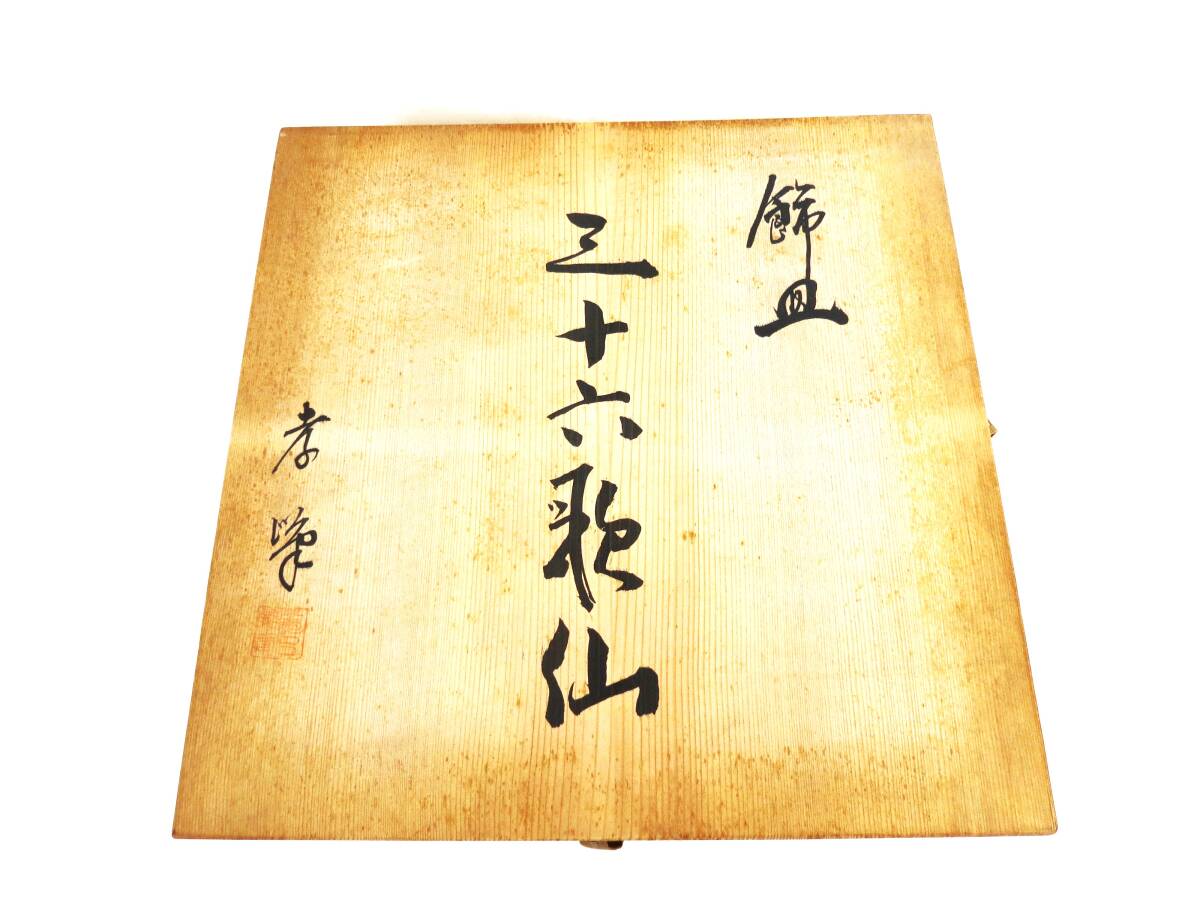 飾皿
三十六歌仙
孝峯